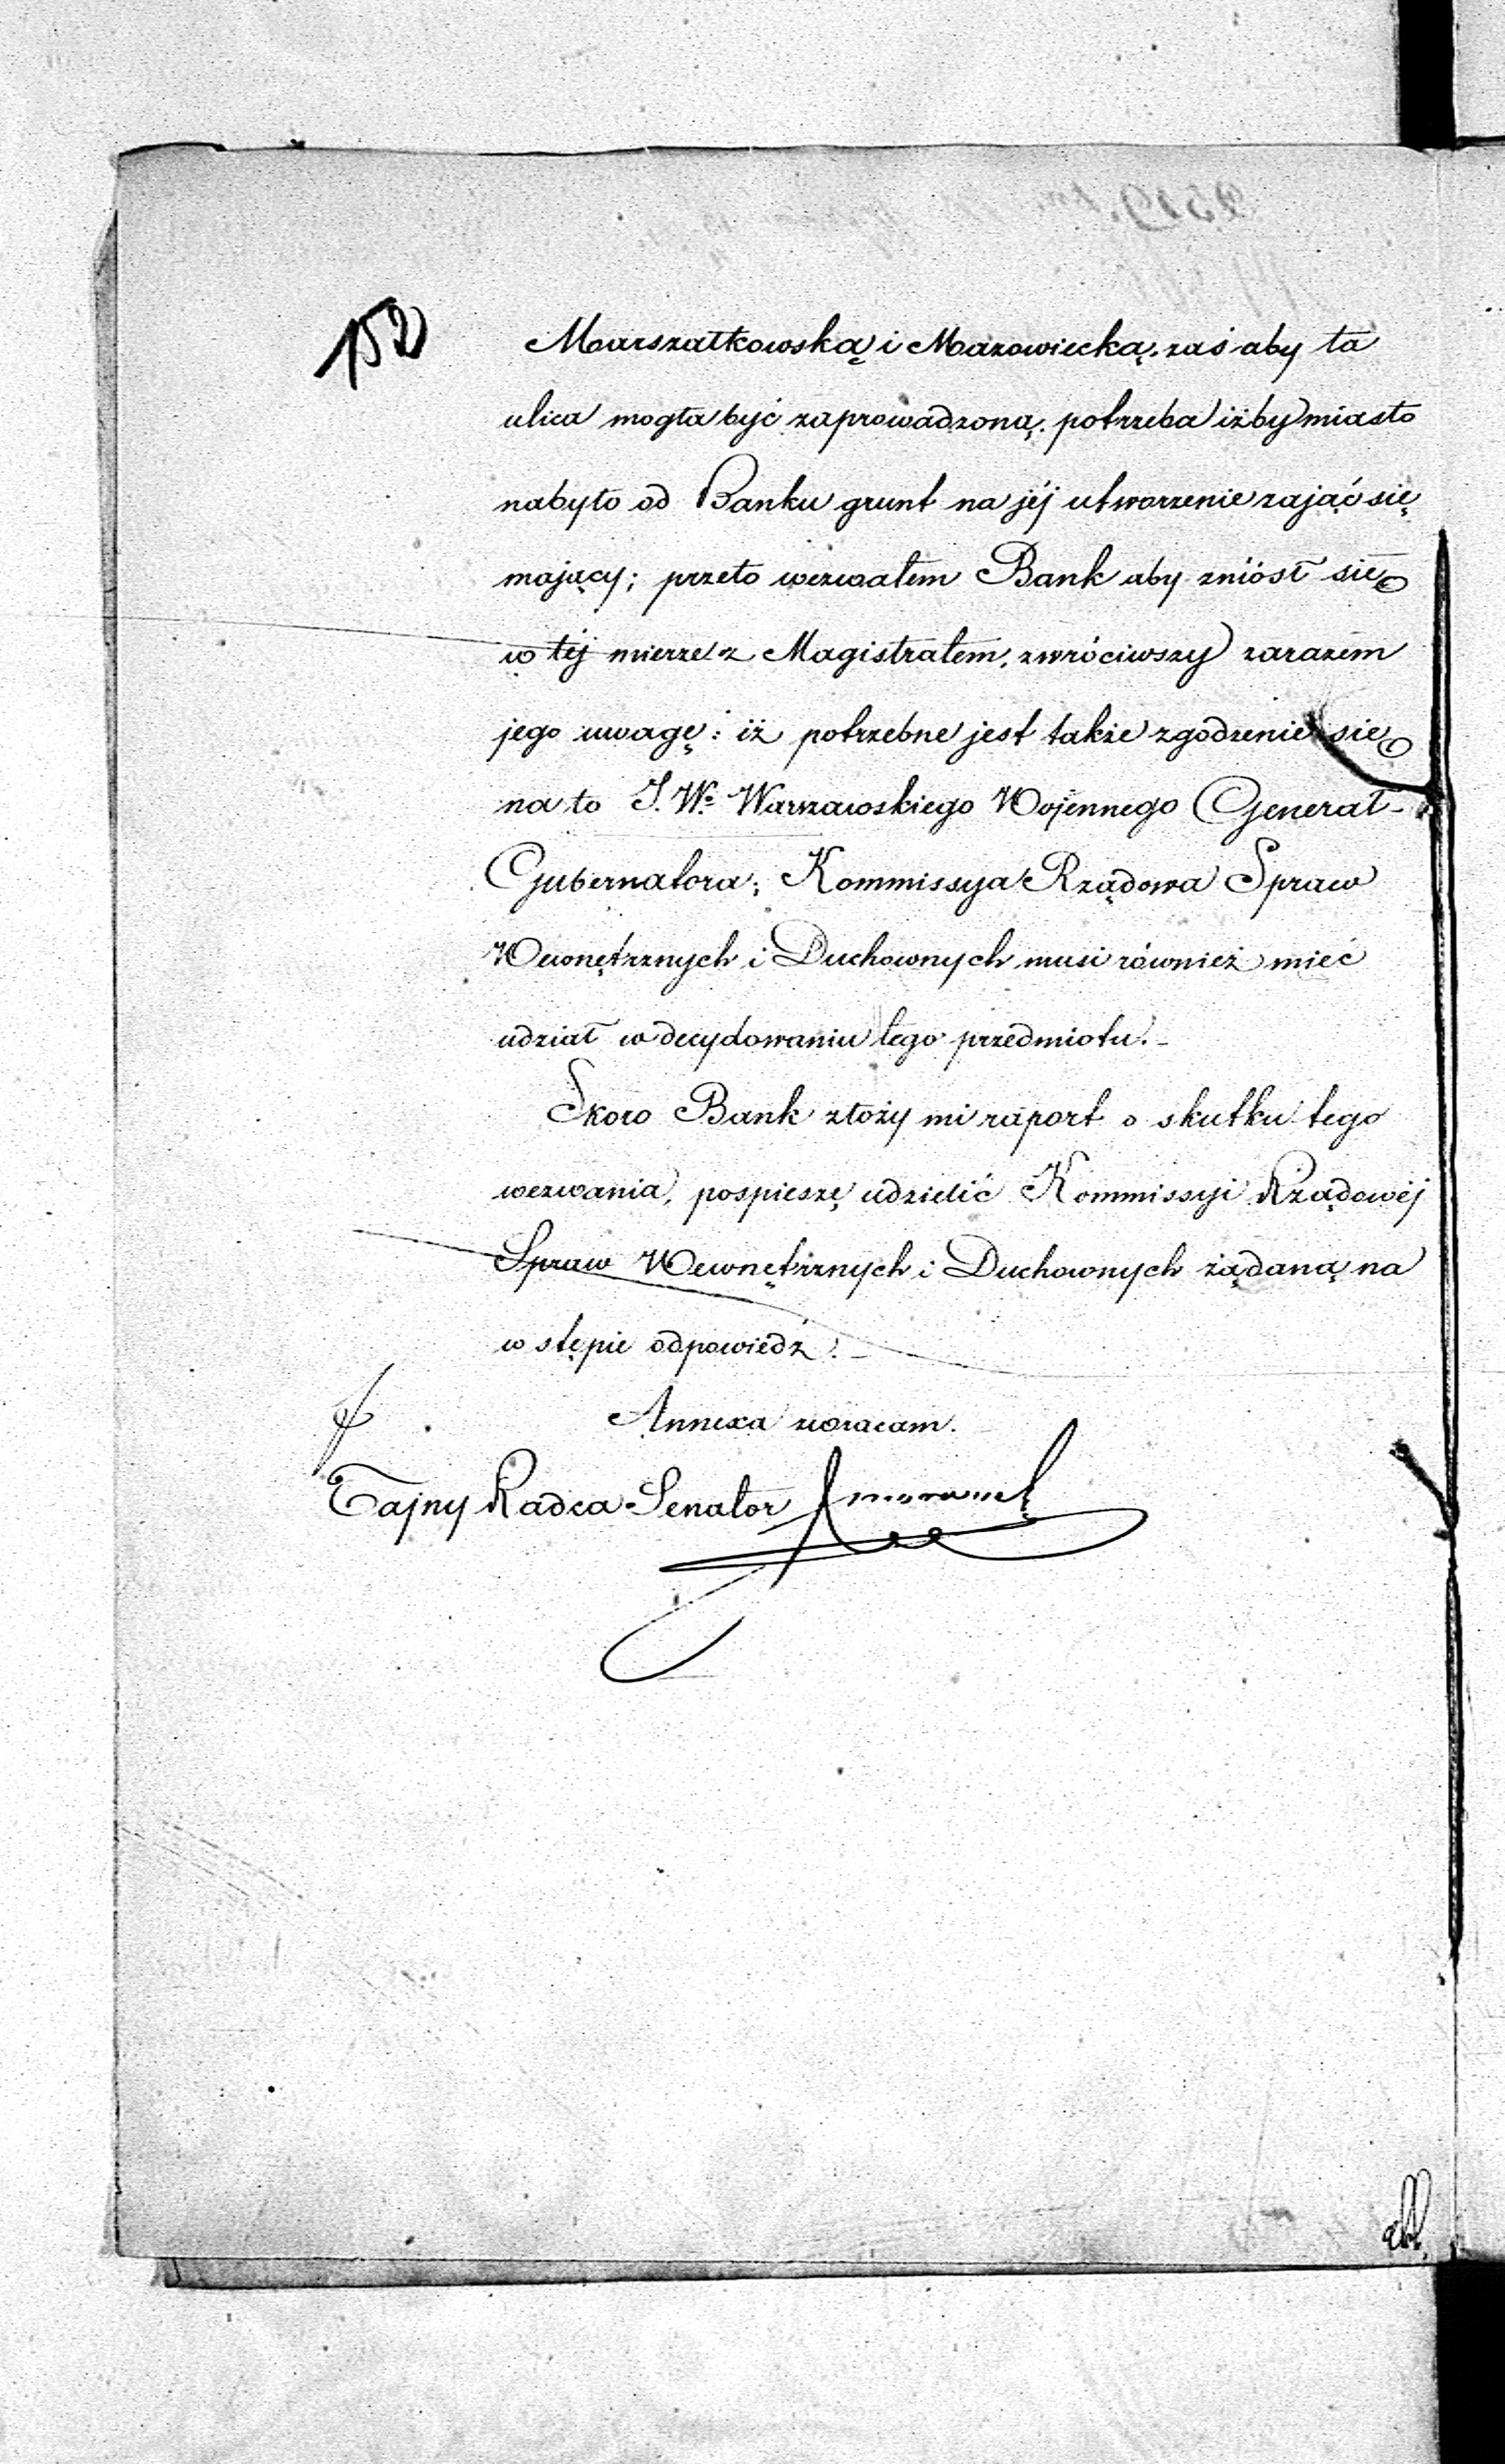 152
Marszałkowską i Mazowiecką, zaś aby ta
ulica mogła być zaprowadzoną, potrzeba iżby miasto
nabyło od Banku grunt na jéj utworzenie zająć się
mający; przeto wezwałem Bank aby zniósł się
w téj mierze z Magistratem, zwróciwszy zarazem
jego uwagę: iż potrzebne jest także zgodzenie się
na to J. W. Warszawskiego Wojennego Generał-
Gubernatora; Kommissya Rządowa Spraw
Wewnętrznych i Duchownych musi również mieć
udział w decydowaniu tego przedmiotu. -
Skoro Bank złoży mi raport o skutku tego
wezwania, pospieszę udzielić Kommissyi Rządowéj
Spraw Wewnętrznych i Duchownych żądaną na
wstępie odpowiedź. -
Annexa zwracam.
Tajny Radca Senator